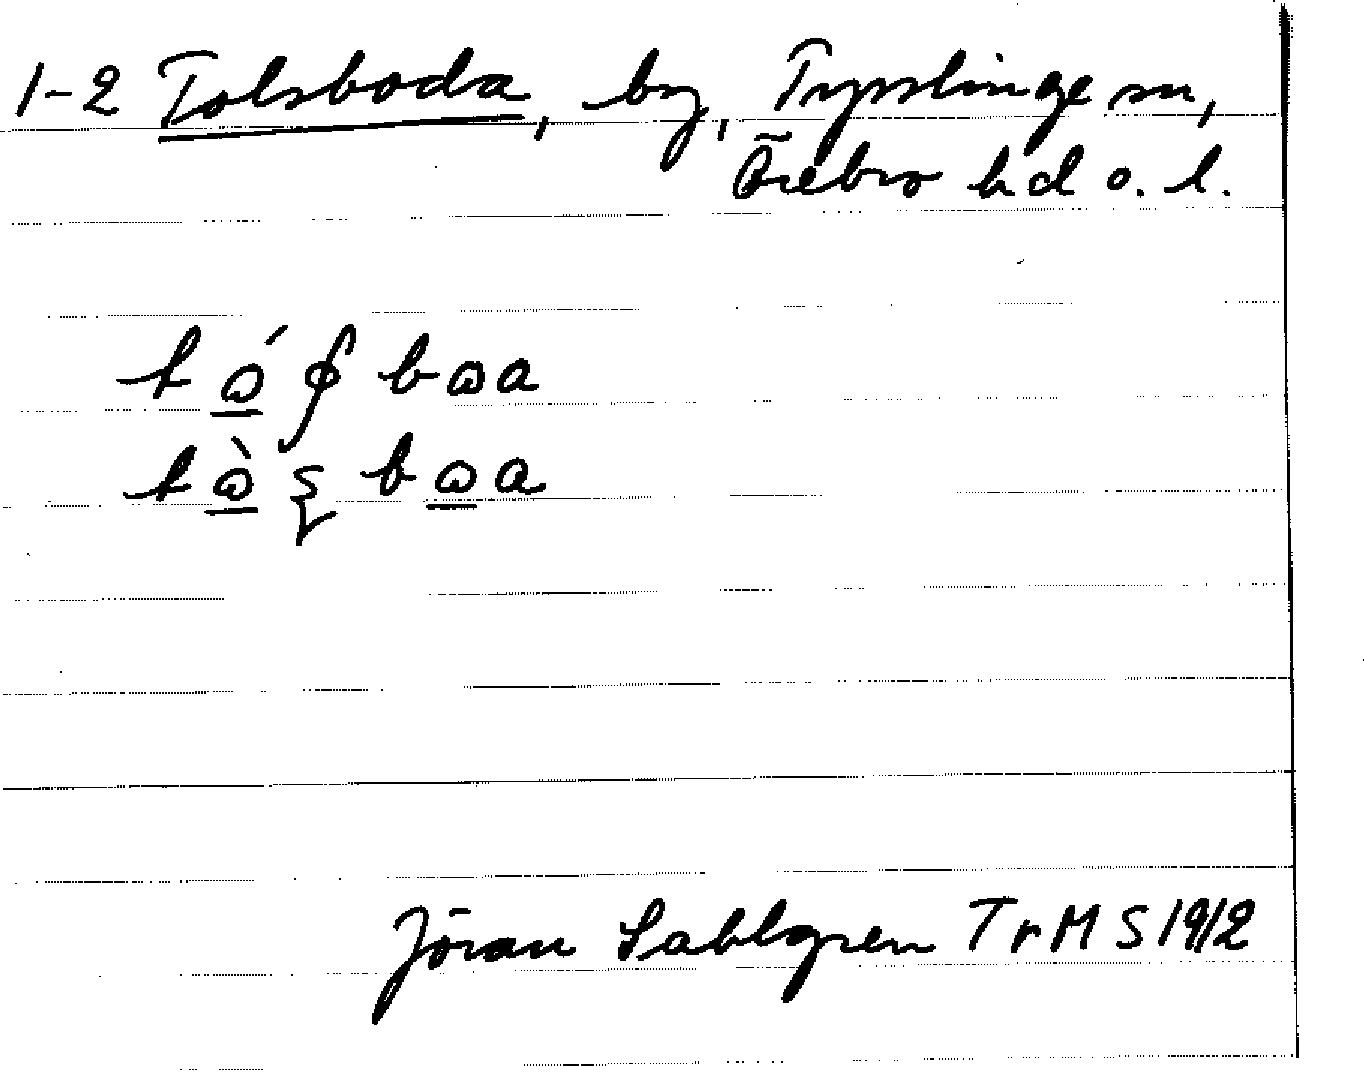 1-2 Tolsboda, by, Tysslinge sn,
Örebro hd o. l.
Jöran Sahlgren TrMS 1912